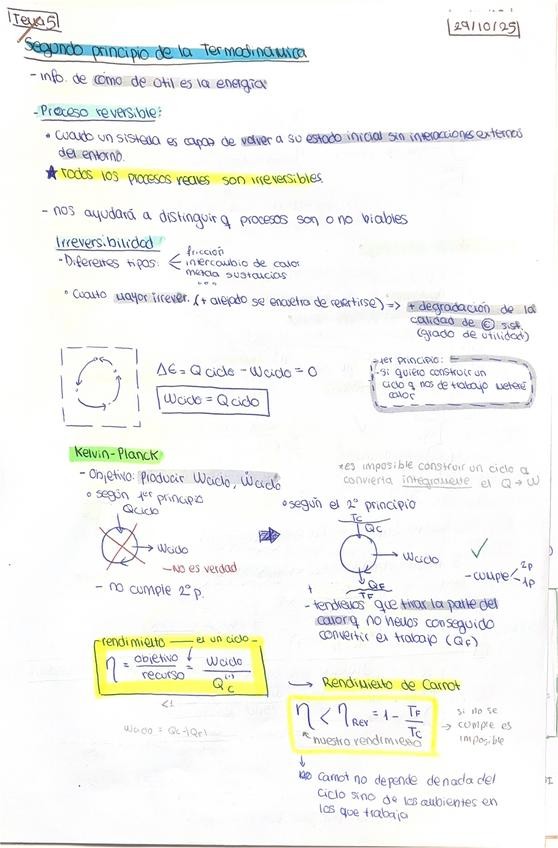 Tema 5
29/10/25
Segundo principio de la Termodinámica
- info. de cómo de útil es la energía
- Proceso reversible:
• Cuando un sistema es capaz de volver a su estado inicial sin interacciones externas
del entorno.
★ Todos los procesos reales son irreversibles.
- nos ayudará a distinguir q procesos son o no biables
Irreversibilidad
- Diferentes tipos: fricción
intercambio de calor
mezcla sustancias
...
• Cuanto mayor irrever. (+ alejado se encuetra de revertirse) => + degradación de la
calidad de Ⓔ sist.
(grado de utilidad)
ΔE = Q ciclo - Wciclo = 0
Wciclo = Qciclo
- 1er principio:
- si quiero construir un
ciclo q nos de trabajo meteré
calor
Kelvin-Planck
- Objetivo: Producir Wciclo, Ẇciclo
• según 1er principio
Qciclo
→ Wciclo
- No es verdad
- no cumple 2º p.
*es imposible construir un ciclo q
convierta íntegramente el Q → W
• según el 2º principio
Tc
Qc
→ Wciclo
✓
- cumple 2p
1p
QF
TF
+
- tendremos que tirar la parte del
calor q no hemos conseguido
convertir en trabajo (QF)
rendimiento — es un ciclo -
η = objetivo / recurso = Wciclo / Qc
<1
Wciclo = Qc-|QF|
→ Rendimiento de Carnot
η < ηRev = 1 - TF / Tc
nuestro rendimiento
→ si no se
cumple es
imposible
↓
Carnot no depende de nada del
ciclo sino de los ambientes en
los que trabaja